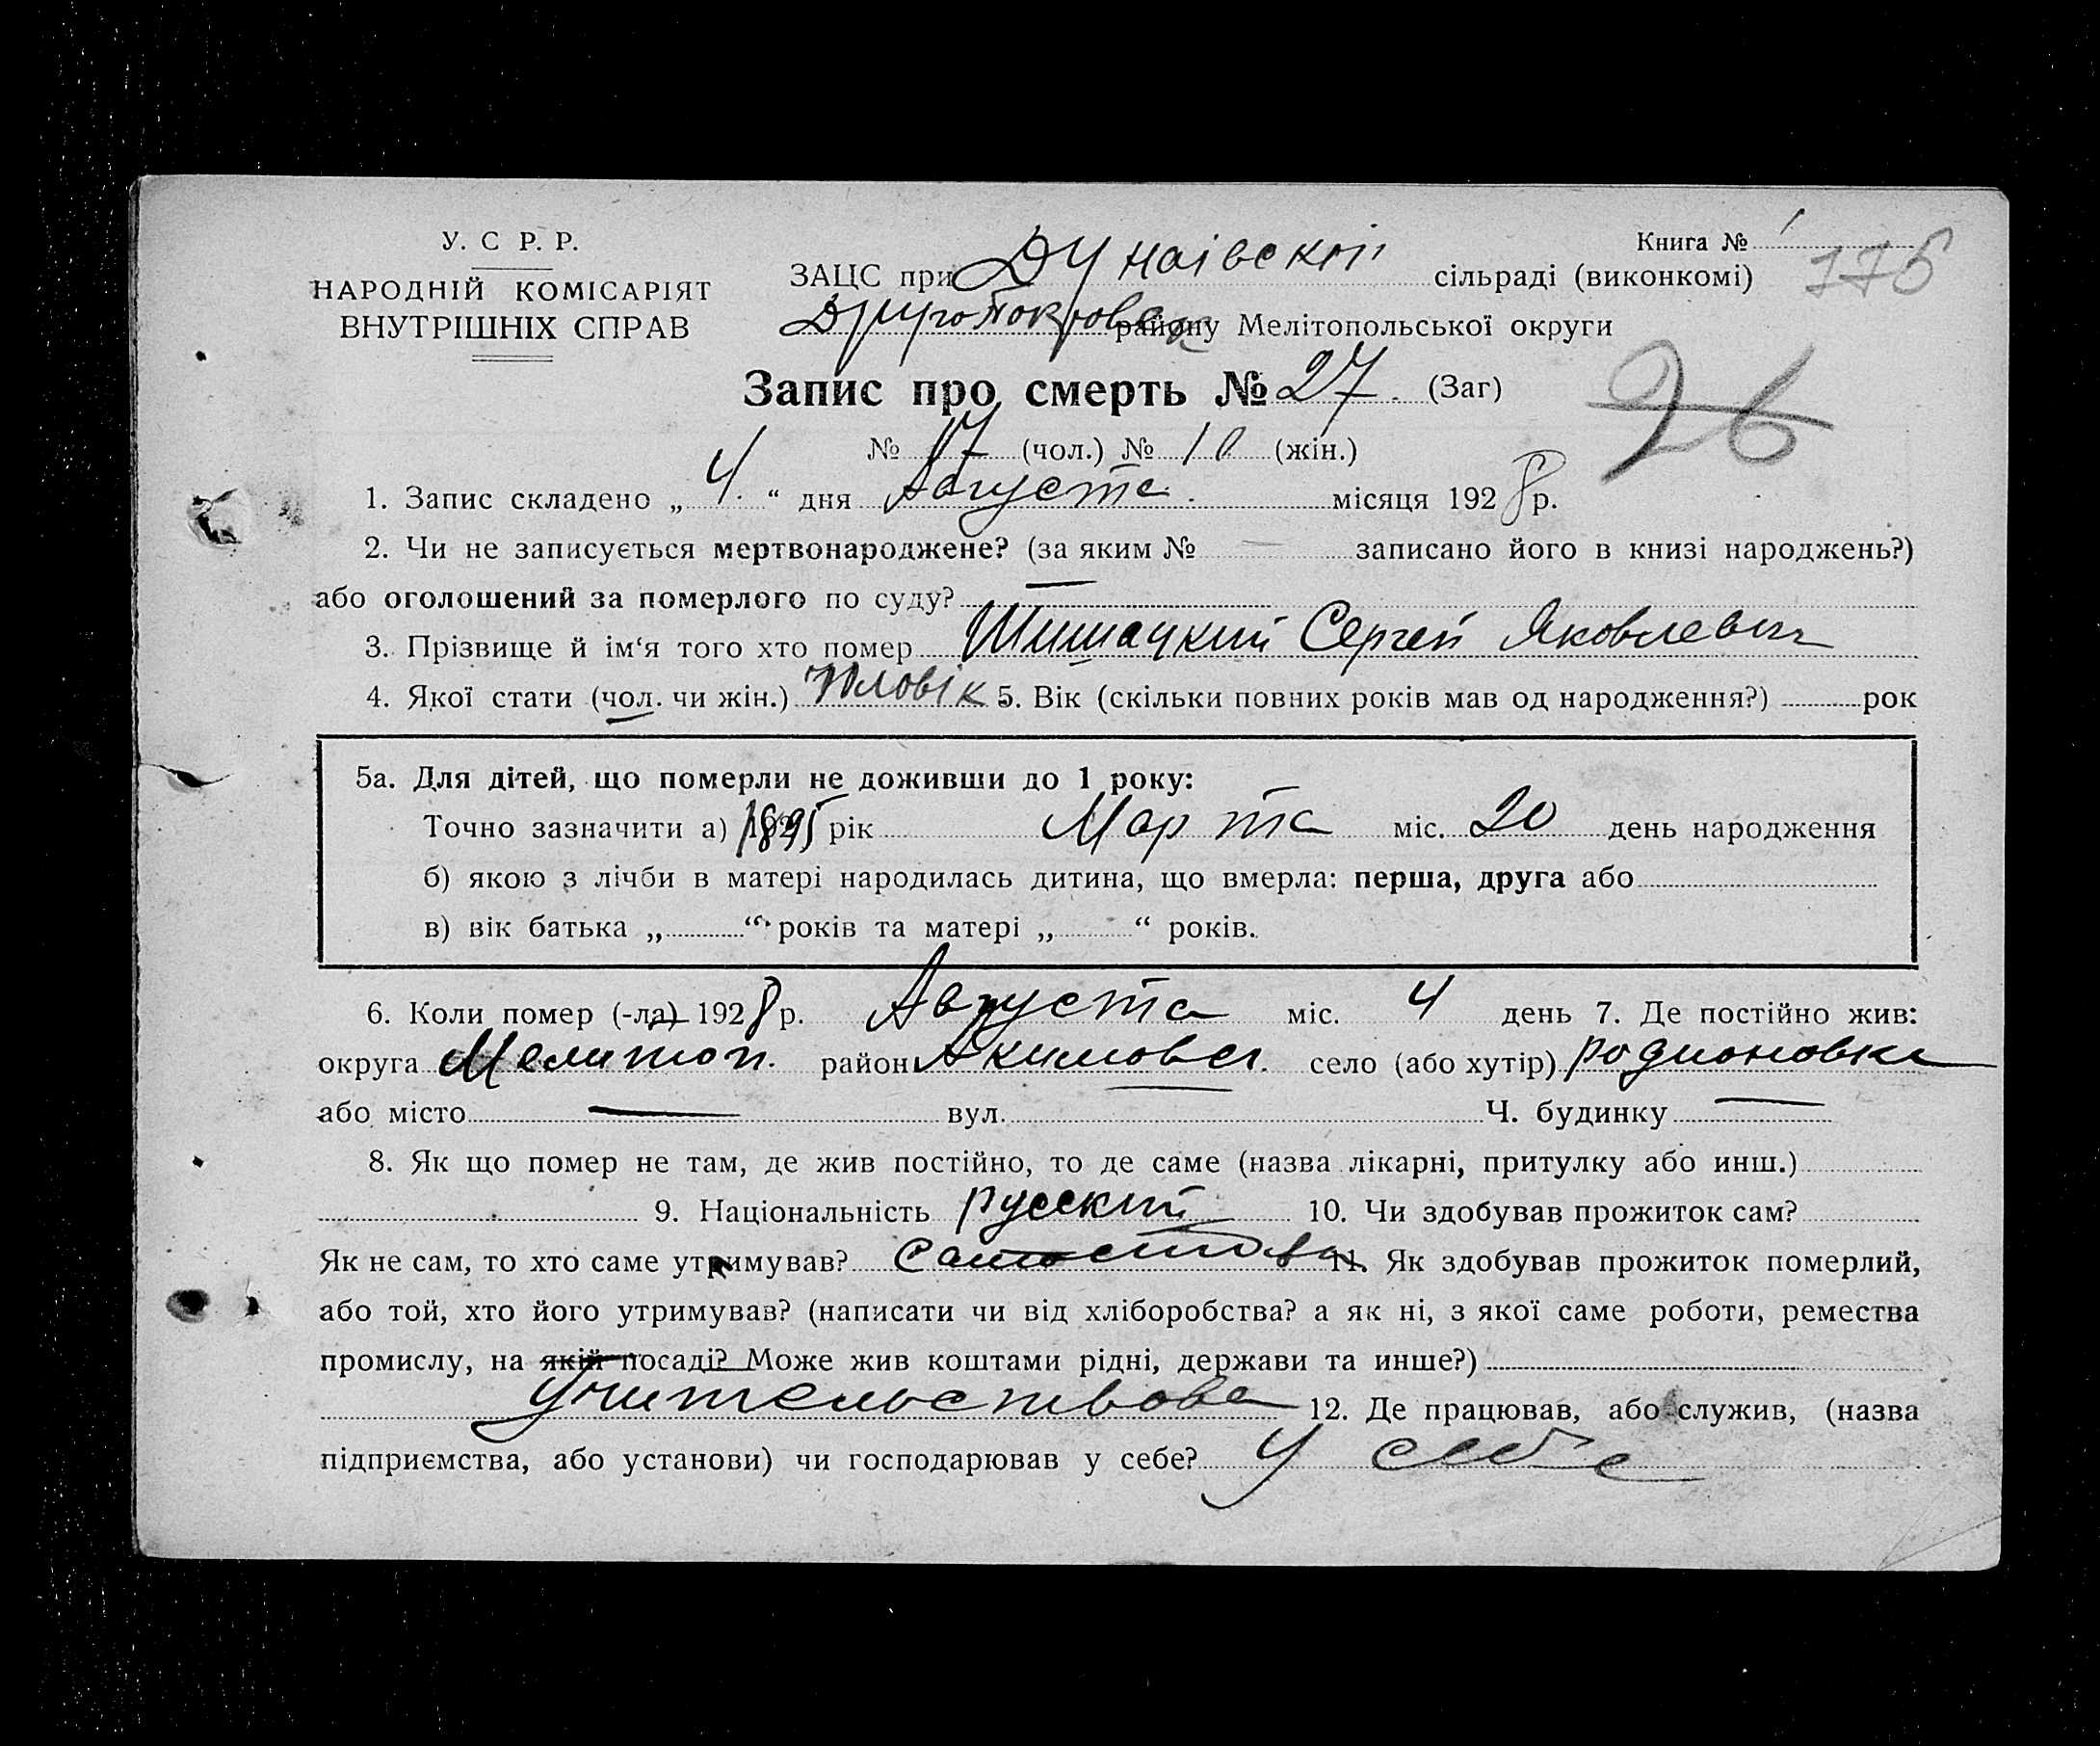 У. С Р. Р.
НАРОДНІЙ КОМІСАРІЯТ
ВНУТРІШНІХ СПРАВ
Книга № 1
176
ЗАЦС при Дунаівскій сільраді (виконкомі)
ДругоПокровск району Мелітопольської округи
Запис про смерть № 27. (Заг)
26
№ 17 (чол.) № 10 (жін.)
1. Запис складено „ 4. “ дня Августа. місяця 1928 р.
2. Чи не записується мертвонароджене? (за яким № — записано його в книзі народжень?)
або оголошений за померлого по суду? —
3. Прізвище й ім‘я того хто помер Шишацкий Сергей Яковлевич
4. Якої стати (чол. чи жін.) Чоловік 5. Вік (скільки повних років мав од народження?) рок
5а. Для дітей, що померли не доживши до 1 року:
Точно зазначити а) 1895 рік Марта міс. 20 день народження
б) якою з лічби в матері народилась дитина, що вмерла: перша, друга або
в) вік батька „ “ років та матері „ “ років.
6. Коли помер (-ла) 1928 р. Августа міс. 4 день 7. Де постійно жив:
округа Мелитоп. район Акимовск. село (або хутір) Родионовка
або місто — вул. Ч. будинку —
8. Як що помер не там, де жив постійно, то де саме (назва лікарні, притулку або инш.)
9. Національність русский 10. Чи здобував прожиток сам?
Як не сам, то хто саме утримував? 11. Як здобував прожиток померлий,
або той, хто його утримував? (написати чи від хліборобства? а як ні, з якої саме роботи, ремества
промислу, на якій посаді? Може жив коштами рідні, держави та инше?)
Учительствова 12. Де працював, або служив, (назва
підприємства, або установи) чи господарював у себе? У себе